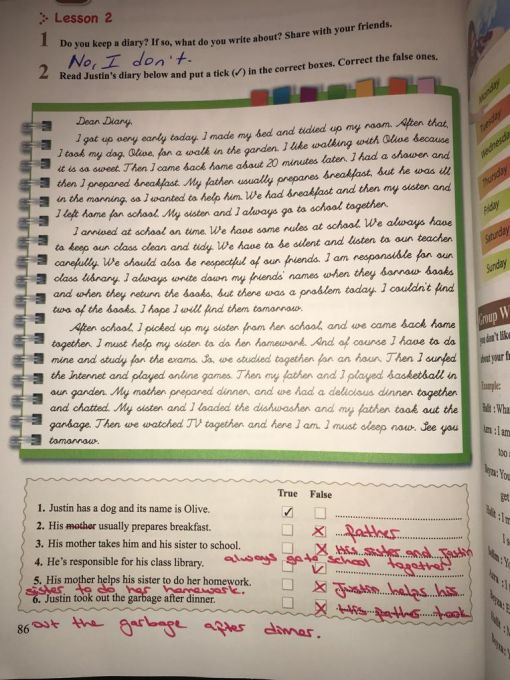 Lesson 2
1 Do you keep a diary? If so, what do you write about? Share with your friends.
No, I don't.
2 Read Justin's diary below and put a tick (✓) in the correct boxes. Correct the false ones.
Dear Diary,
I got up very early today. I made my bed and tidied up my room. After that,
I took my dog, Olive, for a walk in the garden. I like walking with Olive because
it is so sweet. Then I came back home about 20 minutes later. I had a shower and
then I prepared breakfast. My father usually prepares breakfast, but he was ill
in the morning, so I wanted to help him. We had breakfast and then my sister and
I left home for school. My sister and I always go to school together.
I arrived at school on time. We have some rules at school. We always have
to keep our class clean and tidy. We have to be silent and listen to our teacher
carefully. We should also be respectful of our friends. I am responsible for our
class library. I always write down my friends' names when they borrow books
and when they return the books, but there was a problem today. I couldn't find
two of the books. I hope I will find them tomorrow.
After school, I picked up my sister from her school, and we came back home
together. I must help my sister to do her homework. And of course I have to do
mine and study for the exams. So, we studied together for an hour. Then I surfed
the Internet and played online games. Then my father and I played basketball in
our garden. My mother prepared dinner, and we had a delicious dinner together
and chatted. My sister and I loaded the dishwasher and my father took out the
garbage. Then we watched TV together and here I am. I must sleep now. See you
tomorrow.
True False
1. Justin has a dog and its name is Olive. ✓
2. His mother usually prepares breakfast. X father
3. His mother takes him and his sister to school. X His sister and Justin
always go to school together
4. He's responsible for his class library. ✓
5. His mother helps his sister to do her homework. X Justin helps his
sister to do her homework.
6. Justin took out the garbage after dinner. X His father took
out the garbage after dinner.
86
Monday
Tuesday
Wednesday
Thursday
Friday
Saturday
Sunday
Group W
you don't like
about your fr
Example:
Halit : Wha
Azra : I am
too
Beyza: You
get